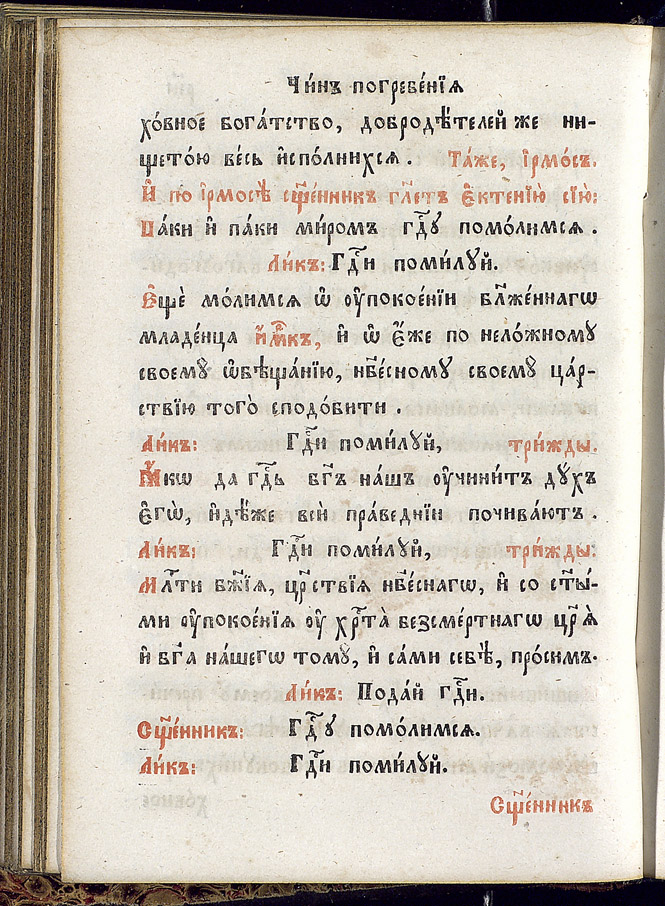 Чи́нъ погребе́нїѧ
хо́вное бога́тство, добродѣ́телей же ни-
щето́ю ве́сь и҆спо́лнихсѧ. Та́же, і҆рмо́съ.
И҆ по і҆рмосѣ̀ сщ҃е́нникъ гл҃етъ є҆ктенїю̀ сїю̀:
Па́ки и҆ па́ки ми́ромъ гдⷭ҇ꙋ помо́лимсѧ.
Ли́къ: Гдⷭ҇и поми́лꙋй.
Є҆щѐ мо́лимсѧ ѡ҆ ᲂу҆покое́нїи бл҃же́ннагѡ
младе́нца и҆́м҃къ, и҆ ѡ҆ є҆́же по нело́жномꙋ
своемꙋ̀ ѡ҆бѣща́нїю, нбⷭ҇номꙋ своемꙋ̀ ца́р-
ствїю того̀ сподо́бити.
Ли́къ: Гдⷭ҇и поми́лꙋй, три́жды.
Ꙗ҆́кѡ да гдⷭ҇ь бг҃ъ на́шъ ᲂу҆чини́тъ дꙋ́хъ
є҆гѡ̀, и҆дѣ́же всѝ пра́веднїи почива́ютъ.
Ли́къ: Гдⷭ҇и поми́лꙋй, три́жды:
Млⷭ҇ти бж҃їѧ, црⷭ҇твїѧ нбⷭ҇нагѡ, и҆ со ст҃ы́-
ми ᲂу҆покое́нїѧ ᲂу҆ хрⷭ҇та̀ безсме́ртнагѡ цр҃ѧ̀
и҆ бг҃а на́шегѡ томꙋ̀, и҆ са́ми себѣ̀, про́симъ.
Ли́къ: Пода́й гдⷭ҇и.
Сщ҃е́нникъ: Гдⷭ҇ꙋ помо́лимсѧ.
Ли́къ: Гдⷭ҇и поми́лꙋй.
Сщ҃е́нникъ